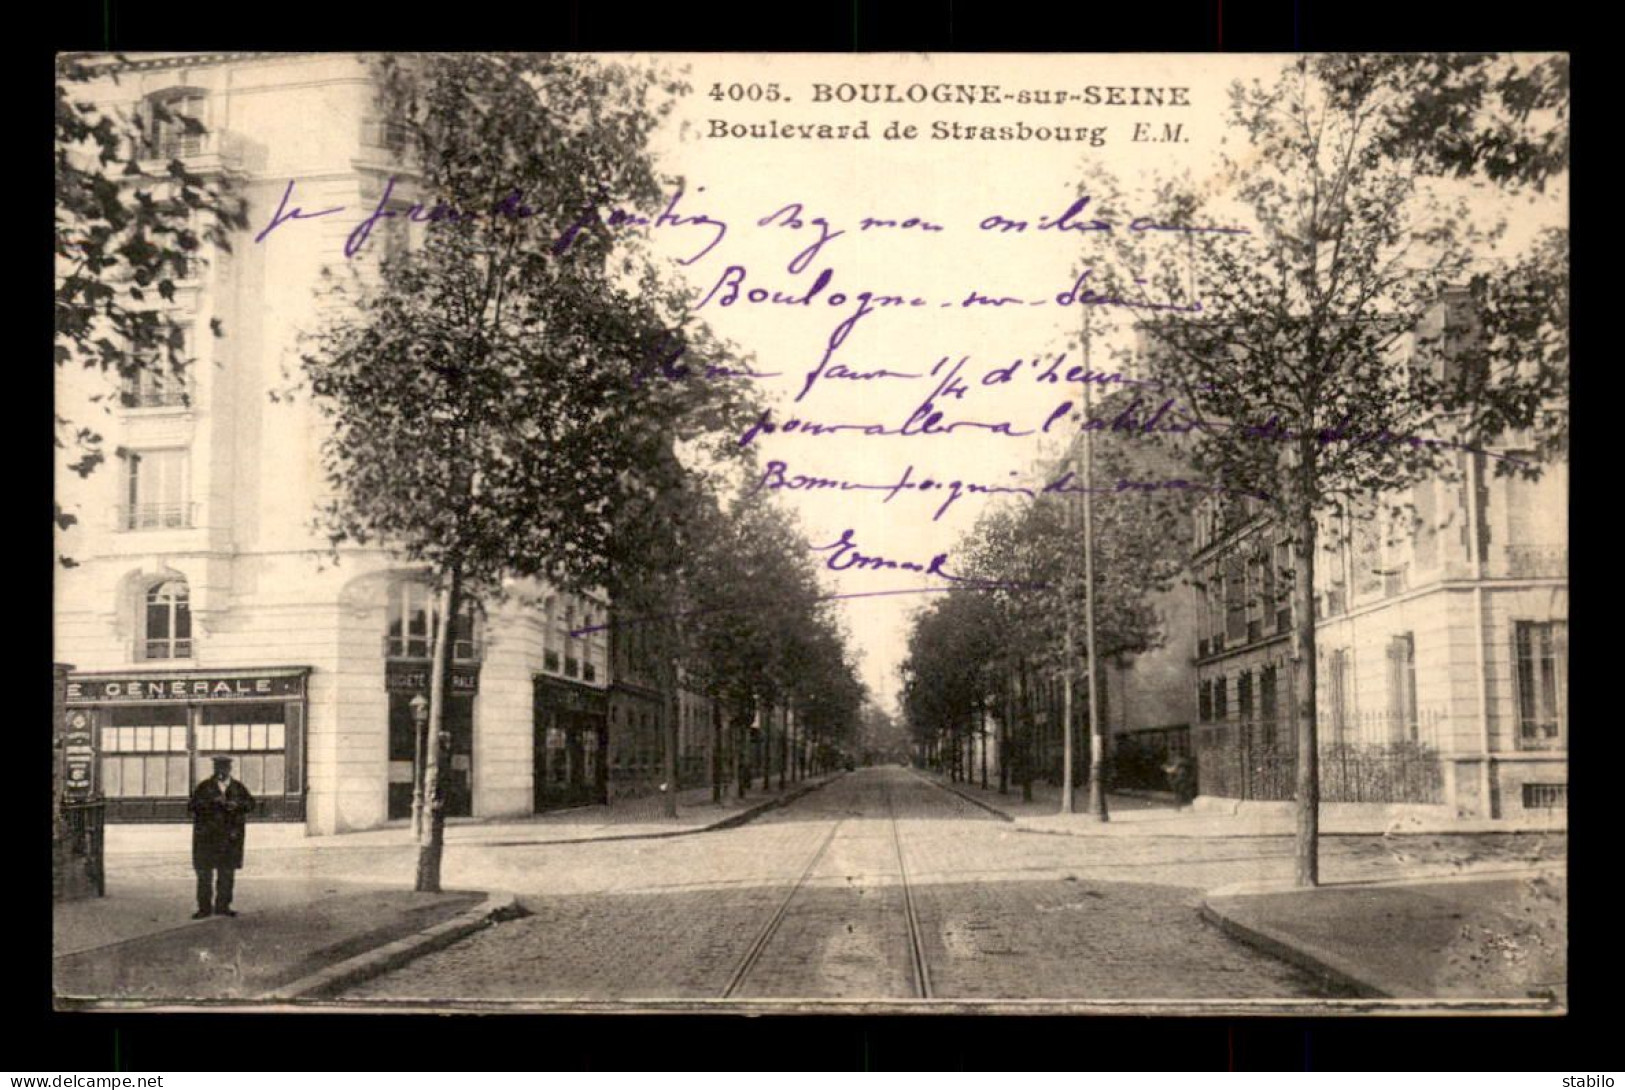 4005. BOULOGNE-sur-SEINE
Boulevard de Strasbourg E.M.
je prends pension chez mon oncle a
Boulogne-sur-Seine
1/4 d'heure
pour aller a l'atelier
Bonne poignée de main
Ernest
E GÉNÉRALE
SOCIÉTÉ GÉNÉRALE
delcampe.net
stabilo